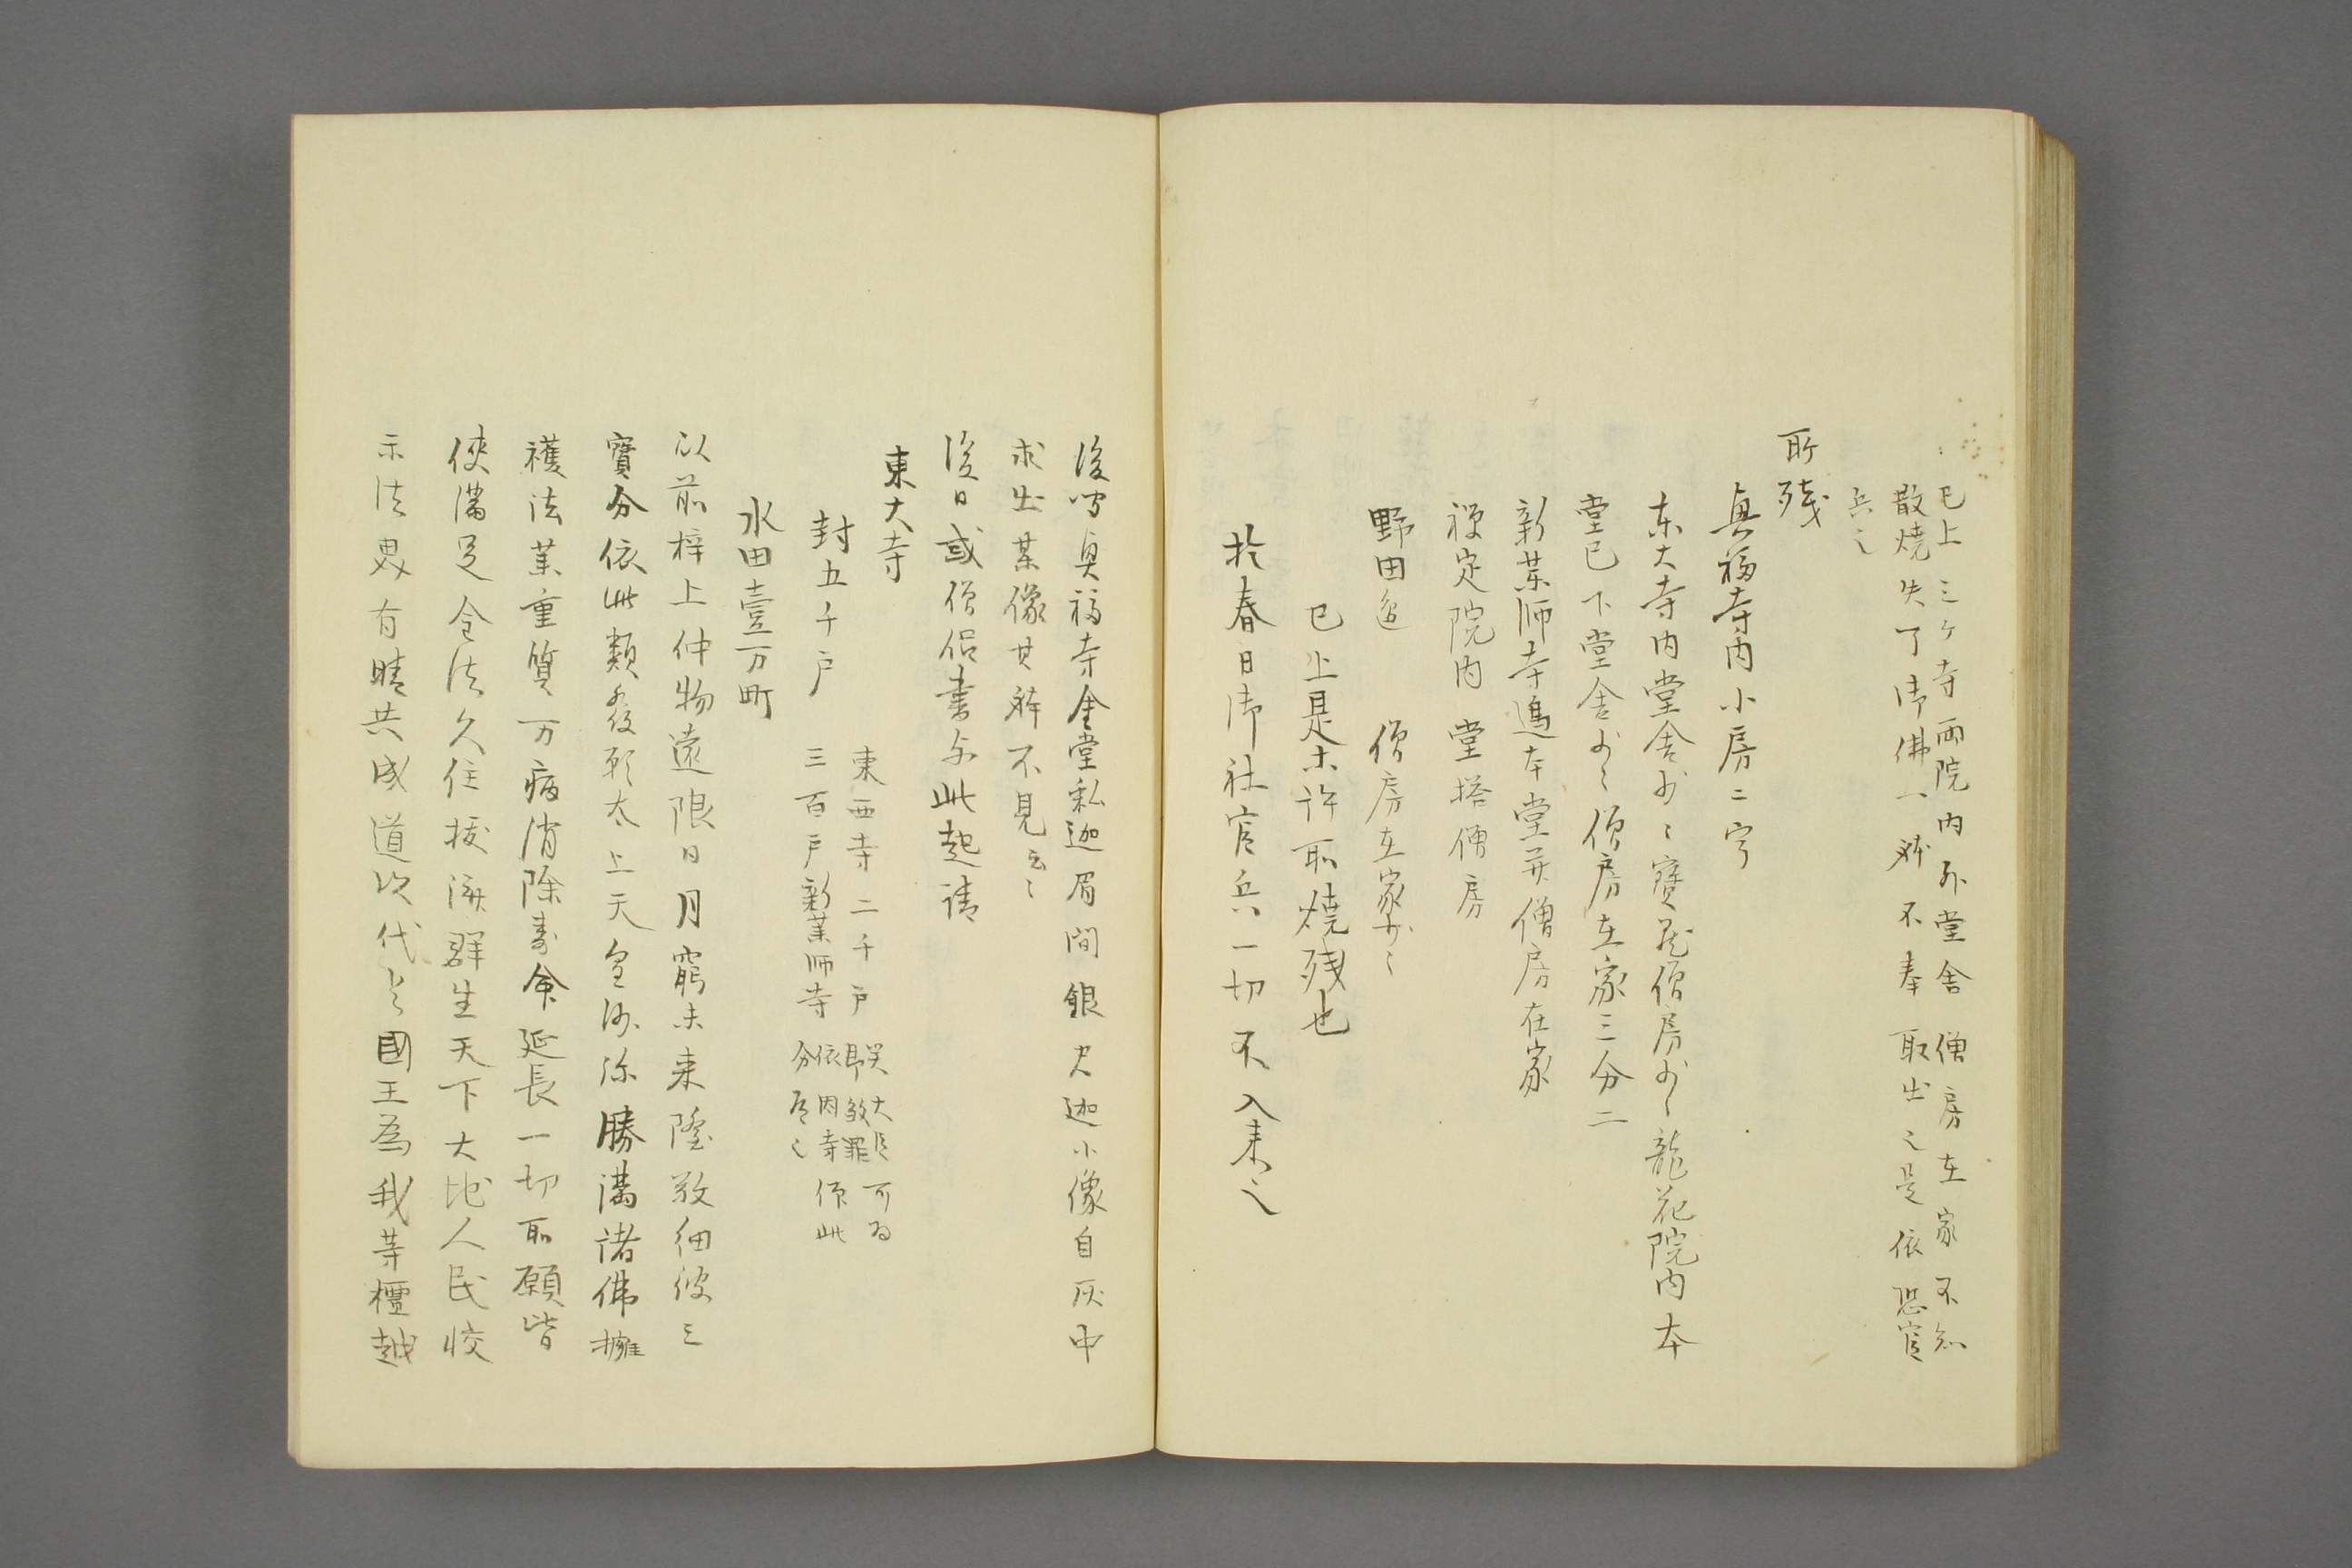 已上三ケ寺両院内外堂舎僧房在家不知
散焼失了御佛一躰不奉取出之是依恐官
兵之
所残
興福寺内小房二宇
東大寺内堂舎少々寶蔵僧房少々龍花院内本
堂已下堂舎少々僧房在家三分二
新薬師寺邊本堂并僧房在家
禅定院内堂塔僧房
野田邊 僧房在家少々
已上是等許所焼残也
於春日御社官兵一切不入来之
後聞興福寺金堂釈迦眉間銀尺迦小像自灰中
求出某像其躰不見云々
後日或僧侶書与此起請
東大寺
封五千戸
東西寺二千戸
三百戸新薬師寺
依因寺依此
分
水田壹万町
以前捧上件物遠限日月窮未来際敬納彼三
寶分依此類發願太上天皇沙弥勝満諸佛擁
護法薬重質万病消除壽命延長一切所願皆
使満足令法久住抜濟群生天下大地人民
示法界有情共成道次代々國王為我等檀越